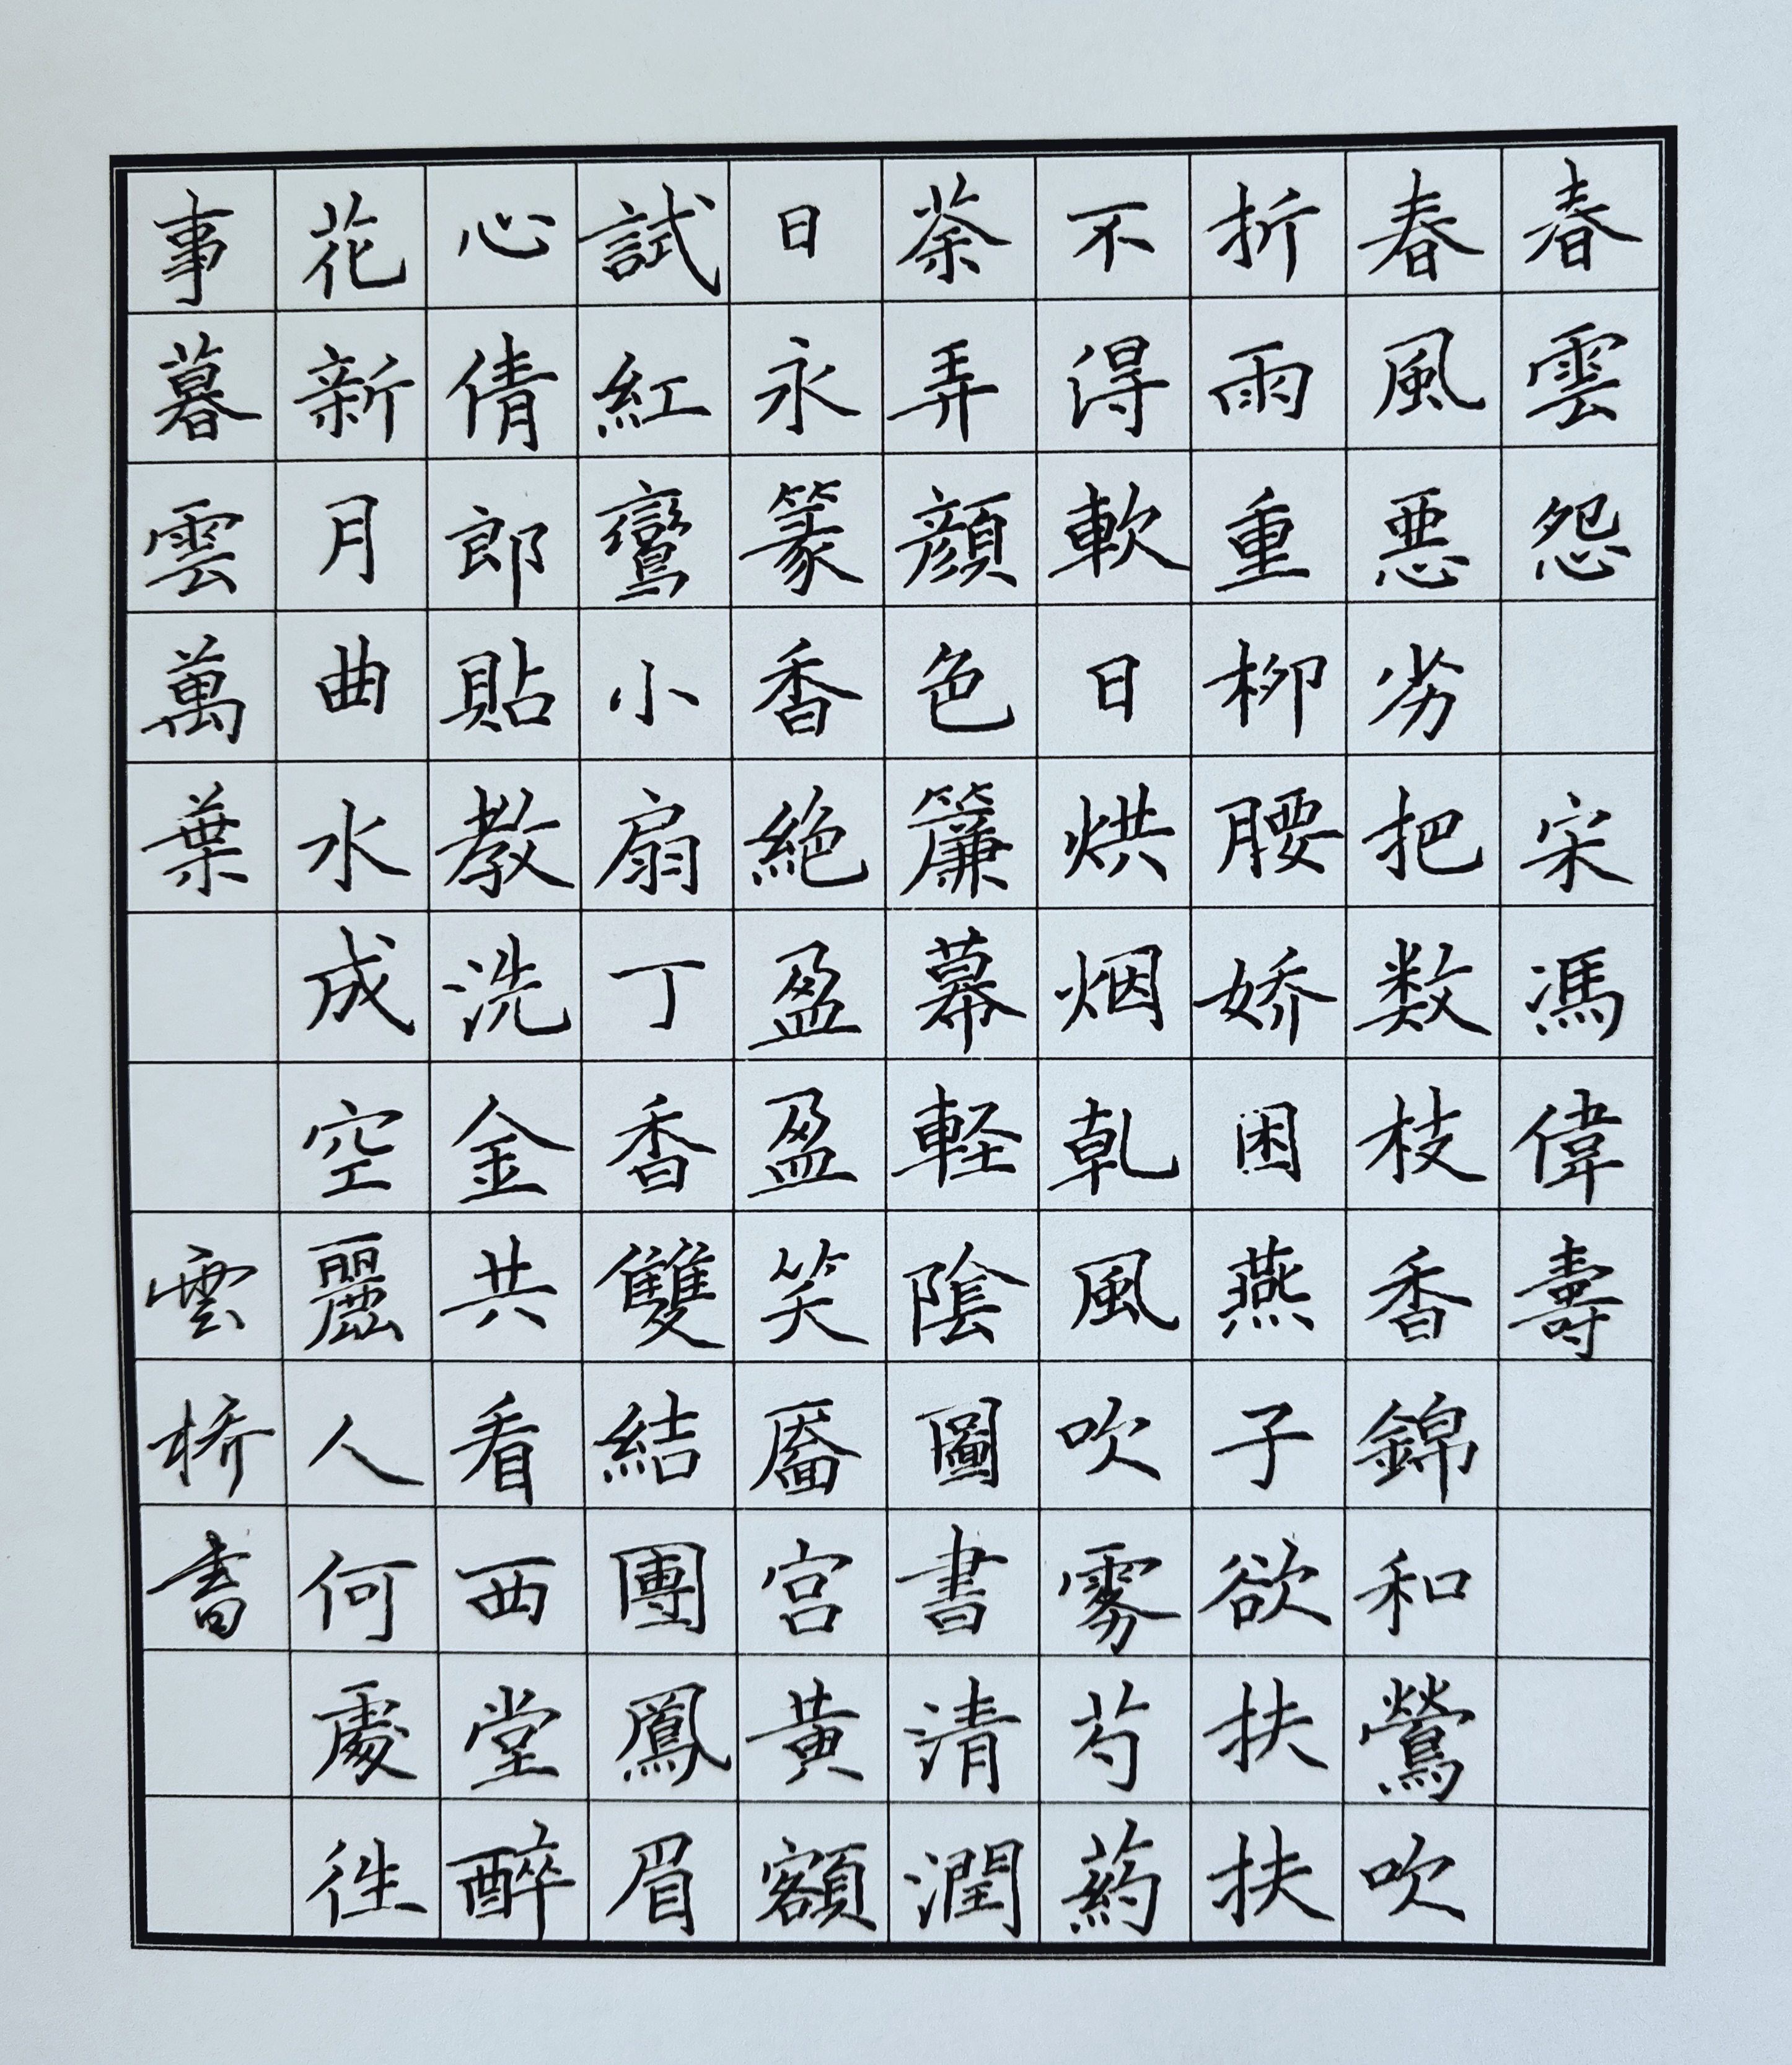 春雲怨 宋馮偉壽
春風惡劣把数枝香錦和鶯吹
折雨重柳腰娇困燕子欲扶扶
不得軟日烘烟乹風吹雾芍葯
荼弄顔色簾幕軽陰圖書清潤
日永篆香絶盈盈笑靨宫黄額
試紅鸞小扇丁香雙結團鳳眉
心倩郎貼教洗金共看西堂醉
花新月曲水成空麗人何處往
事暮雲萬葉 雲桥書